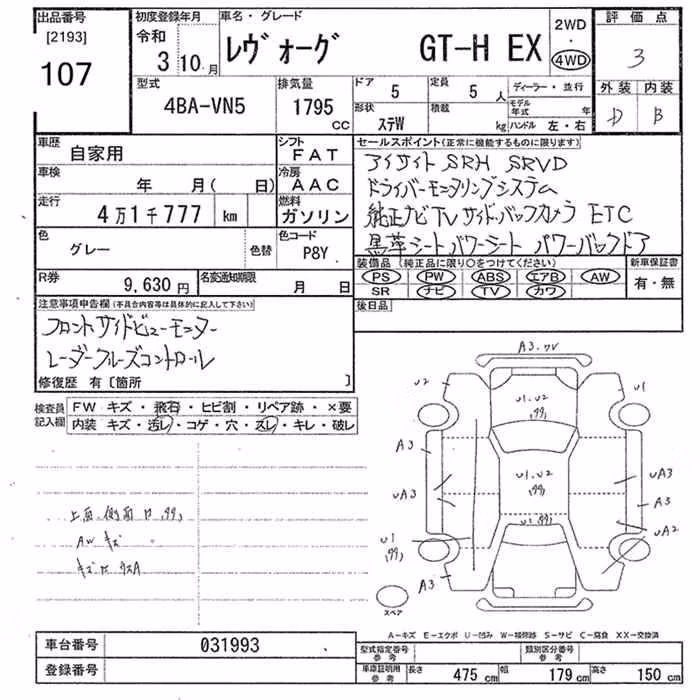 出品番号
[2193]
107
初度登録年月
令和
3 10月
車名・グレード
レヴォーグ GT-H EX
2WD
・
4WD
評価点
3
外装 内装
D B
型式
4BA-VN5
排気量
1795
CC
ドア 5
定員 5 人
形状 ステW
積載 kg
ディーラー・並行
モデル年式 年
ハンドル 左・右
車歴 自家用
シフト FAT
車検 年 月( 日)
冷房 AAC
走行 4万1千777 km
燃料 ガソリン
色 グレー 色替
色コード P8Y
R券 9,630円
名変通知期限 月 日
セールスポイント(正常に機能するものに限ります)
アイサイト SRH SRVD
ドライバーモニタリングシステム
純正ナビTVサイド・バックカメラ ETC
黒革シートパワーシート パワーバックドア
装備品(純正品に限り○をつけてください)
PS PW ABS エアB AW
SR ナビ TV カワ
新車保証書
有・無
後日品
注意事項申告欄(不具合内容等は具体的に記入して下さい)
フロントサイドビューモニター
レーダークルーズコントロール
修復歴 有[箇所 ]
検査員記入欄
FW キズ・飛石・ヒビ割・リペア跡・×要
内装 キズ・汚レ・コゲ・穴・スレ・キレ・破レ
上面、側面
AW キズ
A3.
U2
U1
U1.U2
A3
A3
UA3
UA3
A3
U1.U2
U1
UA2
A3
スペア
A-キズ E-エクボ U-凹み W-補修跡 S-サビ C-腐食 XX-交換済
車台番号 031993
登録番号
型式指定番号 参考
類別区分番号 参考
車庫証明用 参考
長さ 475 cm
幅 179 cm
高さ 150 cm